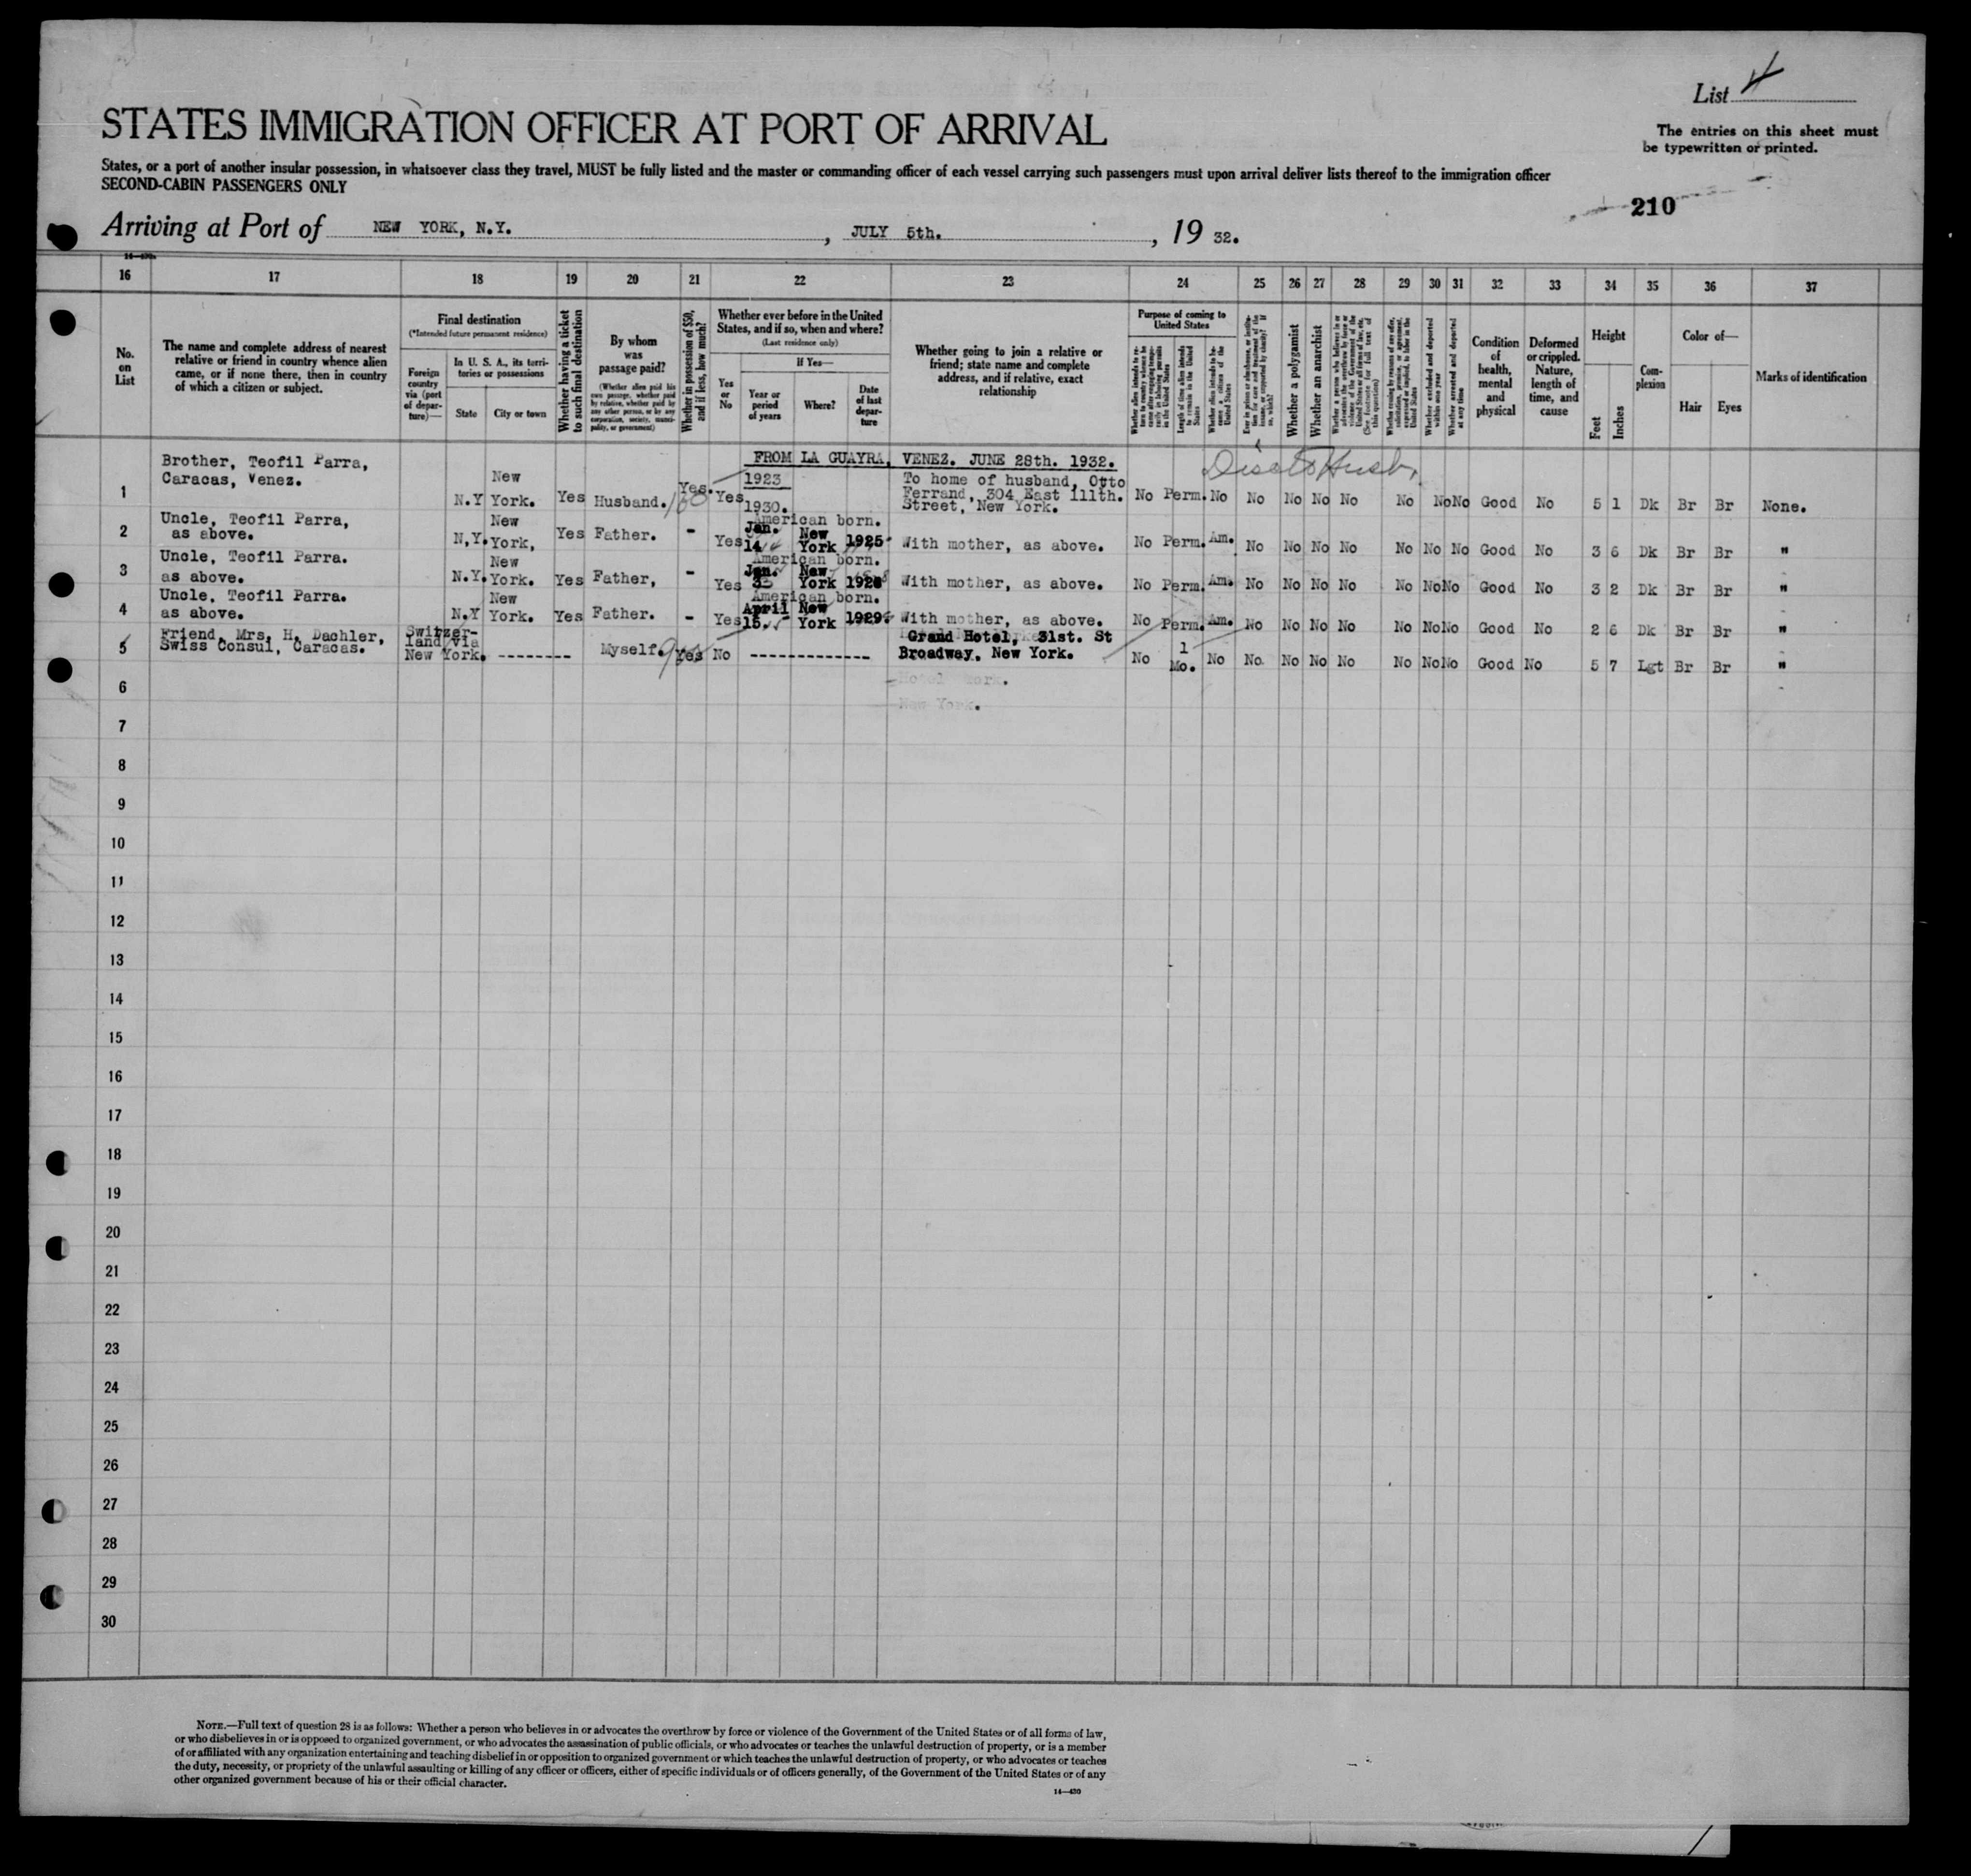 List 4
STATES IMMIGRATION OFFICER AT PORT OF ARRIVAL
The entries on this sheet must
be typewritten or printed.
States, or a port of another insular possession, in whatsoever class they travel, MUST be fully listed and the master or commanding officer of each vessel carrying such passengers must upon arrival deliver lists thereof to the immigration officer
SECOND-CABIN PASSENGERS ONLY
210
Arriving at Port of NEW YORK, N.Y. , JULY 5th. , 19 32.
16 17 18 19 20 21 22 23 24 25 26 27 28 29 30 31 32 33 34 35 36 37
No. on List
The name and complete address of nearest
relative or friend in country whence alien
came, or if none there, then in country
of which a citizen or subject.
Final destination
(*Intended future permanent residence)
Foreign country via (port of departure)—
In U. S. A., its territories or possessions
State
City or town
Whether having a ticket to such final destination
By whom was passage paid?
(Whether alien paid his own passage, whether paid by relative, whether paid by any other person, or by any corporation, society, municipality, or government)
Whether in possession of $50, and if less, how much?
Whether ever before in the United
States, and if so, when and where?
(Last residence only)
Yes or No
If Yes—
Year or period of years
Where?
Date of last departure
Whether going to join a relative or
friend; state name and complete
address, and if relative, exact
relationship
Purpose of coming to United States
Whether a polygamist
Whether an anarchist
Whether excluded and deported within one year
Whether arrested and deported at any time
Condition of health, mental and physical
Deformed or crippled. Nature, length of time, and cause
Height
Feet
Inches
Complexion
Color of—
Hair
Eyes
Marks of identification
FROM LA GUAYRA, VENEZ. JUNE 28th. 1932.
1 Brother, Teofil Parra, Caracas, Venez. N.Y New York. Yes Husband. Yes. Yes 1923 1930. To home of husband, Otto Ferrand, 304 East 111th. Street, New York. No Perm. No No No No No No No No Good No 5 1 Dk Br Br None.
2 Uncle, Teofil Parra, as above. N,Y. New York, Yes Father. - Yes American born. Jan. 14 New York 1925 With mother, as above. No Perm. Am. No No No No No No No Good No 3 6 Dk Br Br "
3 Uncle, Teofil Parra. as above. N.Y. New York. Yes Father, - Yes American born. Jan. New York With mother, as above. No Perm. Am. No No No No No No No Good No 3 2 Dk Br Br "
4 Uncle, Teofil Parra. as above. N.Y New York. Yes Father. - Yes American born. April 15. New York 1929 With mother, as above. No Perm. Am. No No No No No No No Good No 2 6 Dk Br Br "
5 Friend, Mrs. H. Dachler, Swiss Consul, Caracas. Switzerland via New York. -------- Myself. Yes No ------------- Grand Hotel, 31st. St Broadway. New York. No 1 Mo. No No No No No No No No Good No 5 7 Lgt Br Br "
6
7
8
9
10
11
12
13
14
15
16
17
18
19
20
21
22
23
24
25
26
27
28
29
30
NOTE.—Full text of question 28 is as follows: Whether a person who believes in or advocates the overthrow by force or violence of the Government of the United States or of all forms of law,
or who disbelieves in or is opposed to organized government, or who advocates the assassination of public officials, or who advocates or teaches the unlawful destruction of property, or is a member
of or affiliated with any organization entertaining and teaching disbelief in or opposition to organized government or which teaches the unlawful destruction of property, or who advocates or teaches
the duty, necessity, or propriety of the unlawful assaulting or killing of any officer or officers, either of specific individuals or of officers generally, of the Government of the United States or of any
other organized government because of his or their official character.
14—430